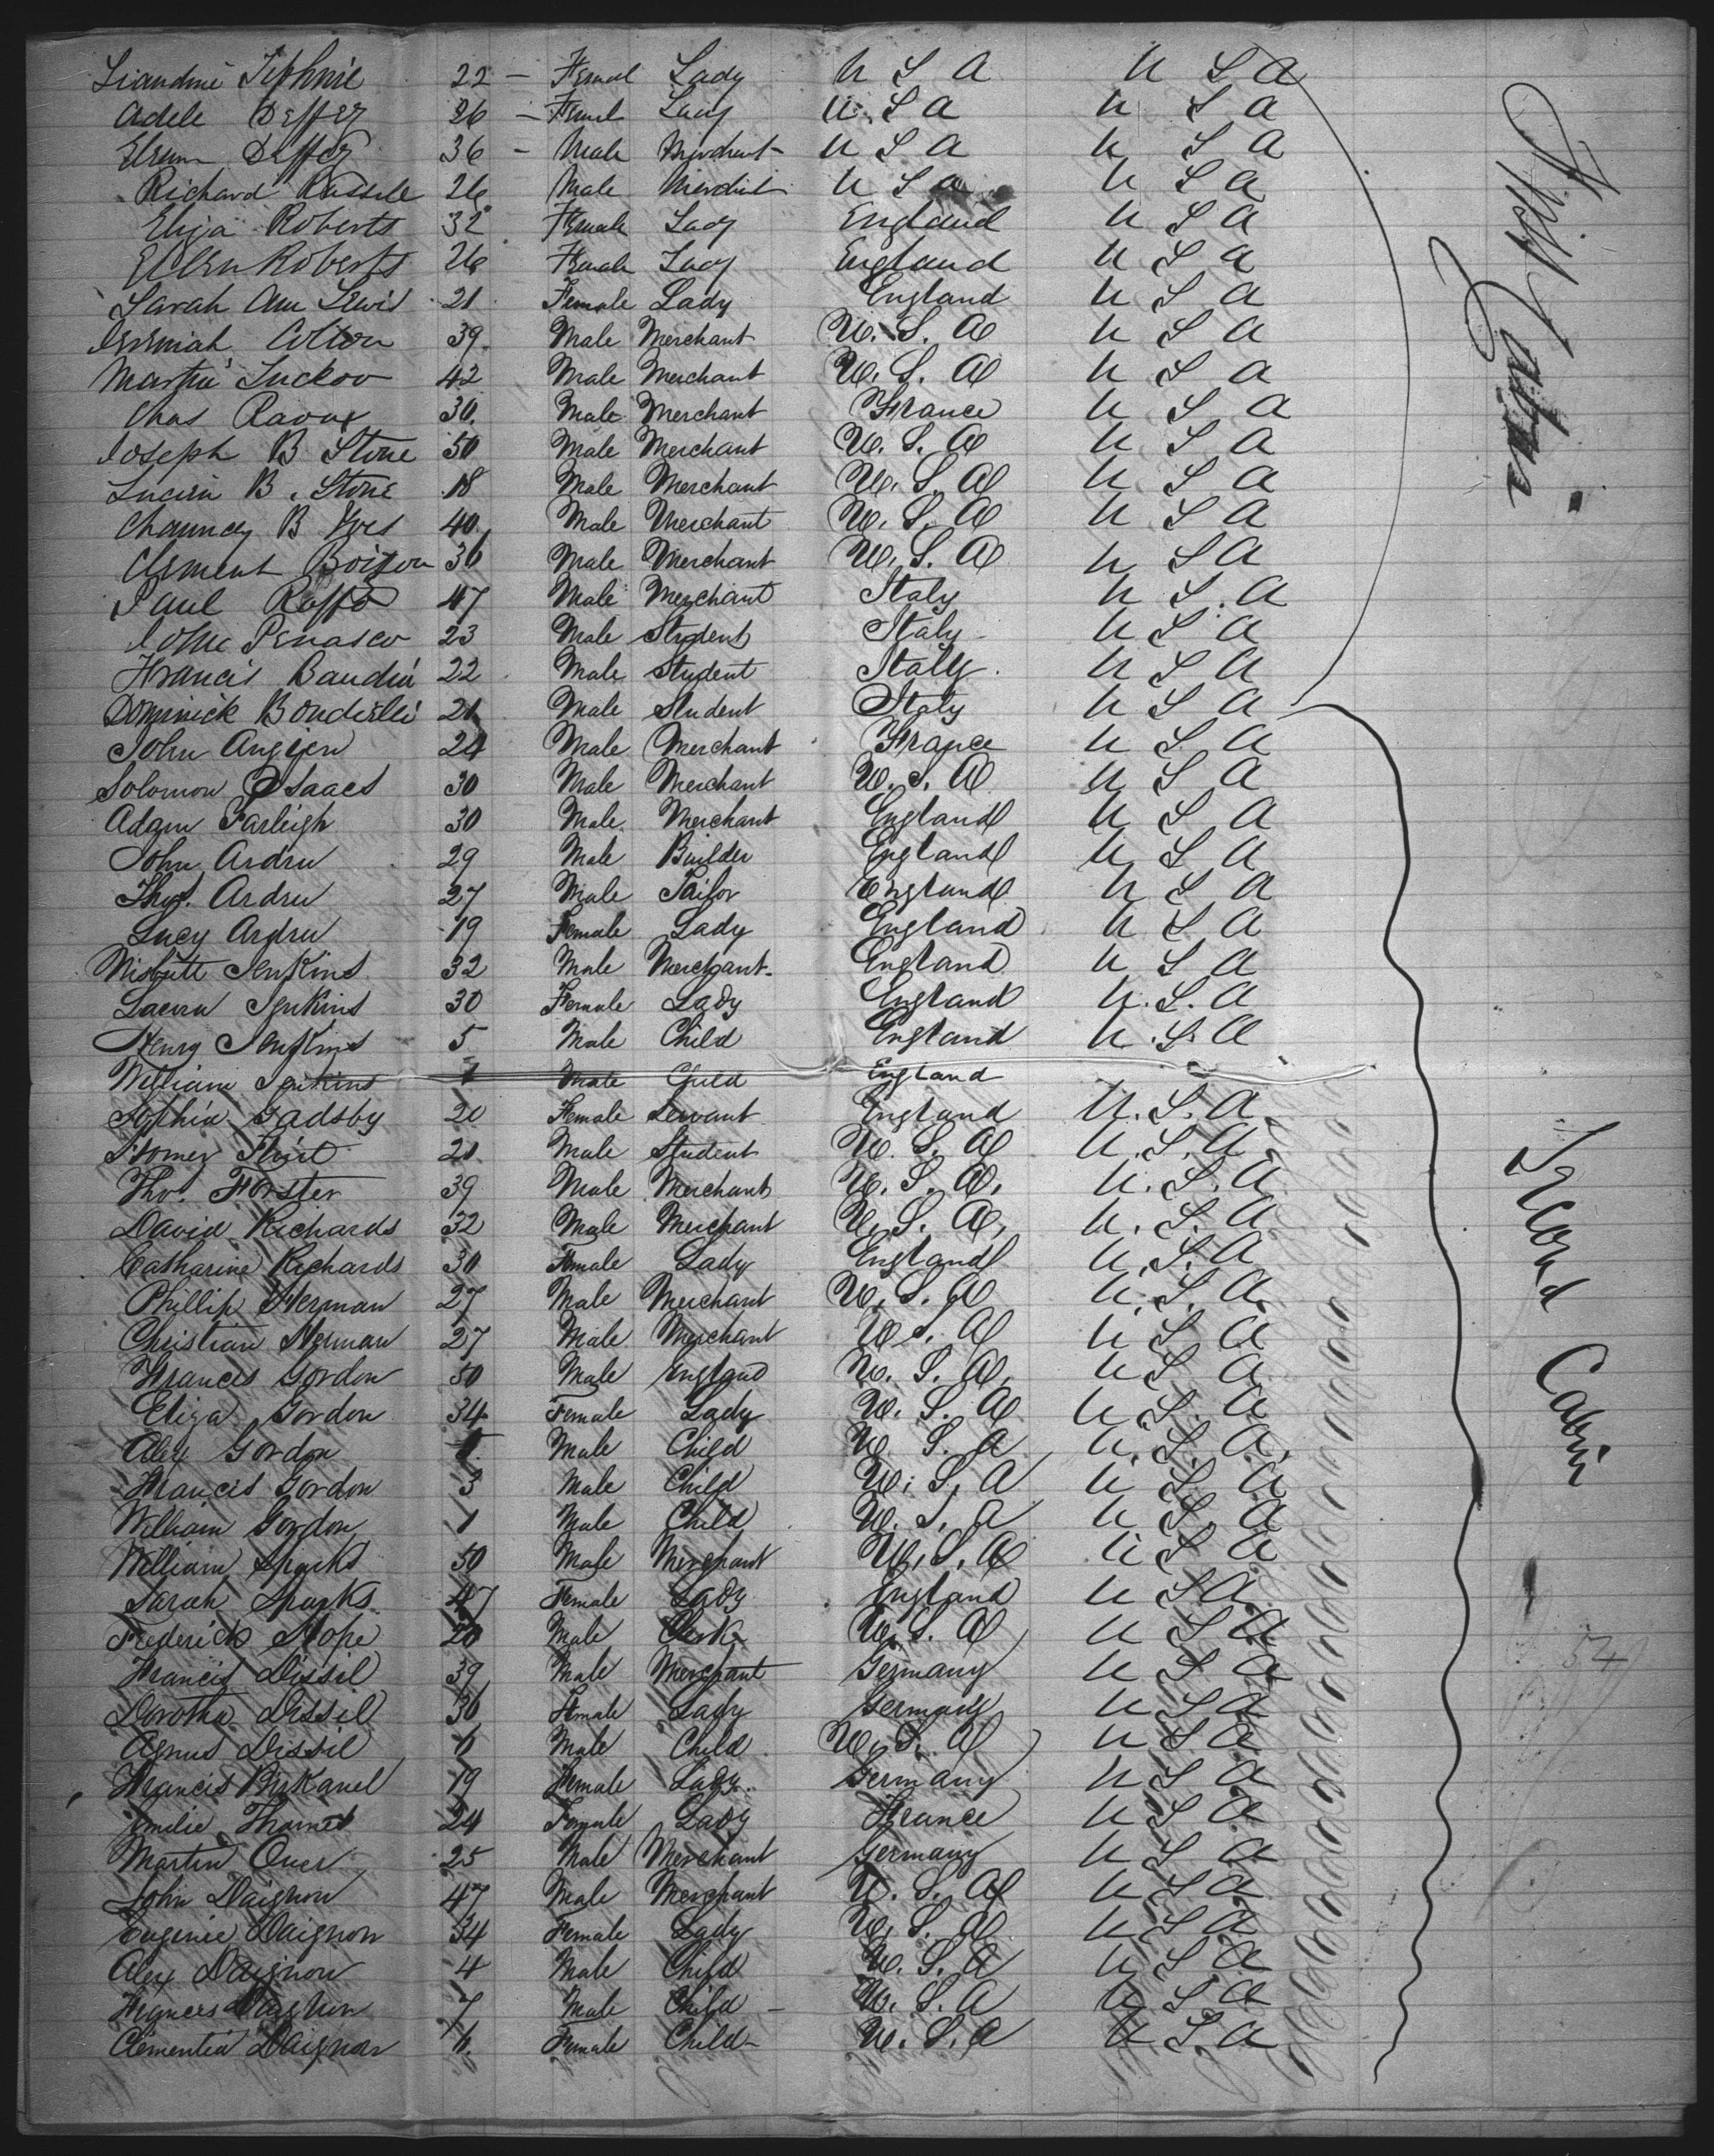 22 - Femal Lady U S A U S A
Adele Deffez 26 - Femal Lady U.S A U S A
Deffez 36 - Male Merchant U S A U S A
Richard Russele 26 Male Merchant U S a U S a
Eliza Roberts 32 Female Lady England U S a
Ellen Roberts 26 Female Lady England U S a
Sarah Ann Lewis 21 Female Lady England U S a
Jeremiah Colton 39 Male Merchant U. S. A U S a
Martin Luckov 42 Male Merchant U. S. A U S a
Chas Raoux 30 Male Merchant France U S A
Joseph B Stone 50 Male Merchant U. S. A U S A
Lucien B. Stone 18 Male Merchant U. S. A U S A
Chauncey B Ives 40 Male Merchant U. S. A U S A
Clement 36 Male Merchant U. S. A U S A
Paul Roffo 47 Male Merchant Italy U S. A
Penasco 23 Male Student Italy U S A
Francis Baudin 22 Male Student Italy U S A
Dominick Bondielli 21 Male Student Italy U S A
John 24 Male Merchant France U S A
Solomon Isaacs 30 Male Merchant U. S. A U S A
Adam Farleigh 30 Male Merchant England U S A
John Ardru 29 Male Builder England U S A
Thos. Ardru 27 Male Tailor England U S A
Lucy Ardru 19 Female Lady England U S A
Nisbitt Jenkins 32 Male Merchant England U S A
Jenkins 30 Female Lady England U. S. A
Henry Jenkins 5 Male Child England U. S. A
William Jenkins Male Child England
Sophia Gadsby 20 Female Servant England U. S. A
21 Male Student U. S. A U. S. A
Tho. Forster 39 Male Merchant U. S. A. U. S. A
David Richards 32 Male Merchant U. S. A. U. S. A
Catharine Richards 30 Female Lady England U. S. A
Phillip Herman 27 Male Merchant U. S. A U. S. A
Christian Herman 27 Male Merchant U S. A U S A
Francis Gordon 50 Male England U. S. A. U S A
Eliza Gordon 34 Female Lady U. S. A U S. A
Alex Gordon Male Child U S. A U. S. A.
Francis Gordon 3 Male Child U. S. A U S A
William Gordon 1 Male Child U. S. A U S. A
William Sparks 50 Male Merchant U. S. A U S A
Sarah Sparks 47 Female Lady England U S A
Frederick Hope 20 Male Clerk U. S. A U S A
Francis Dissil 39 Male Merchant Germany U S A
Dorotha Dissil 30 Female Lady Germany U S A
Agnus Dissil Male Child U. S. A U S A
Francis Birkanel 19 Female Lady Germany U S A
Emilie 24 Female Lady France U S A
Martin 25 Male Merchant Germany U S A
John Daignon 47 Male Merchant U. S. A U S A
Eugenie Daignon 34 Female Lady U. S. A U S A
Alex Daignon 4 Male Child U. S. A U S A
Daignon 7 Male Child - U. S. A U S A
Clementia Daignon Female Child - U. S. A U S. A
Second Cabin